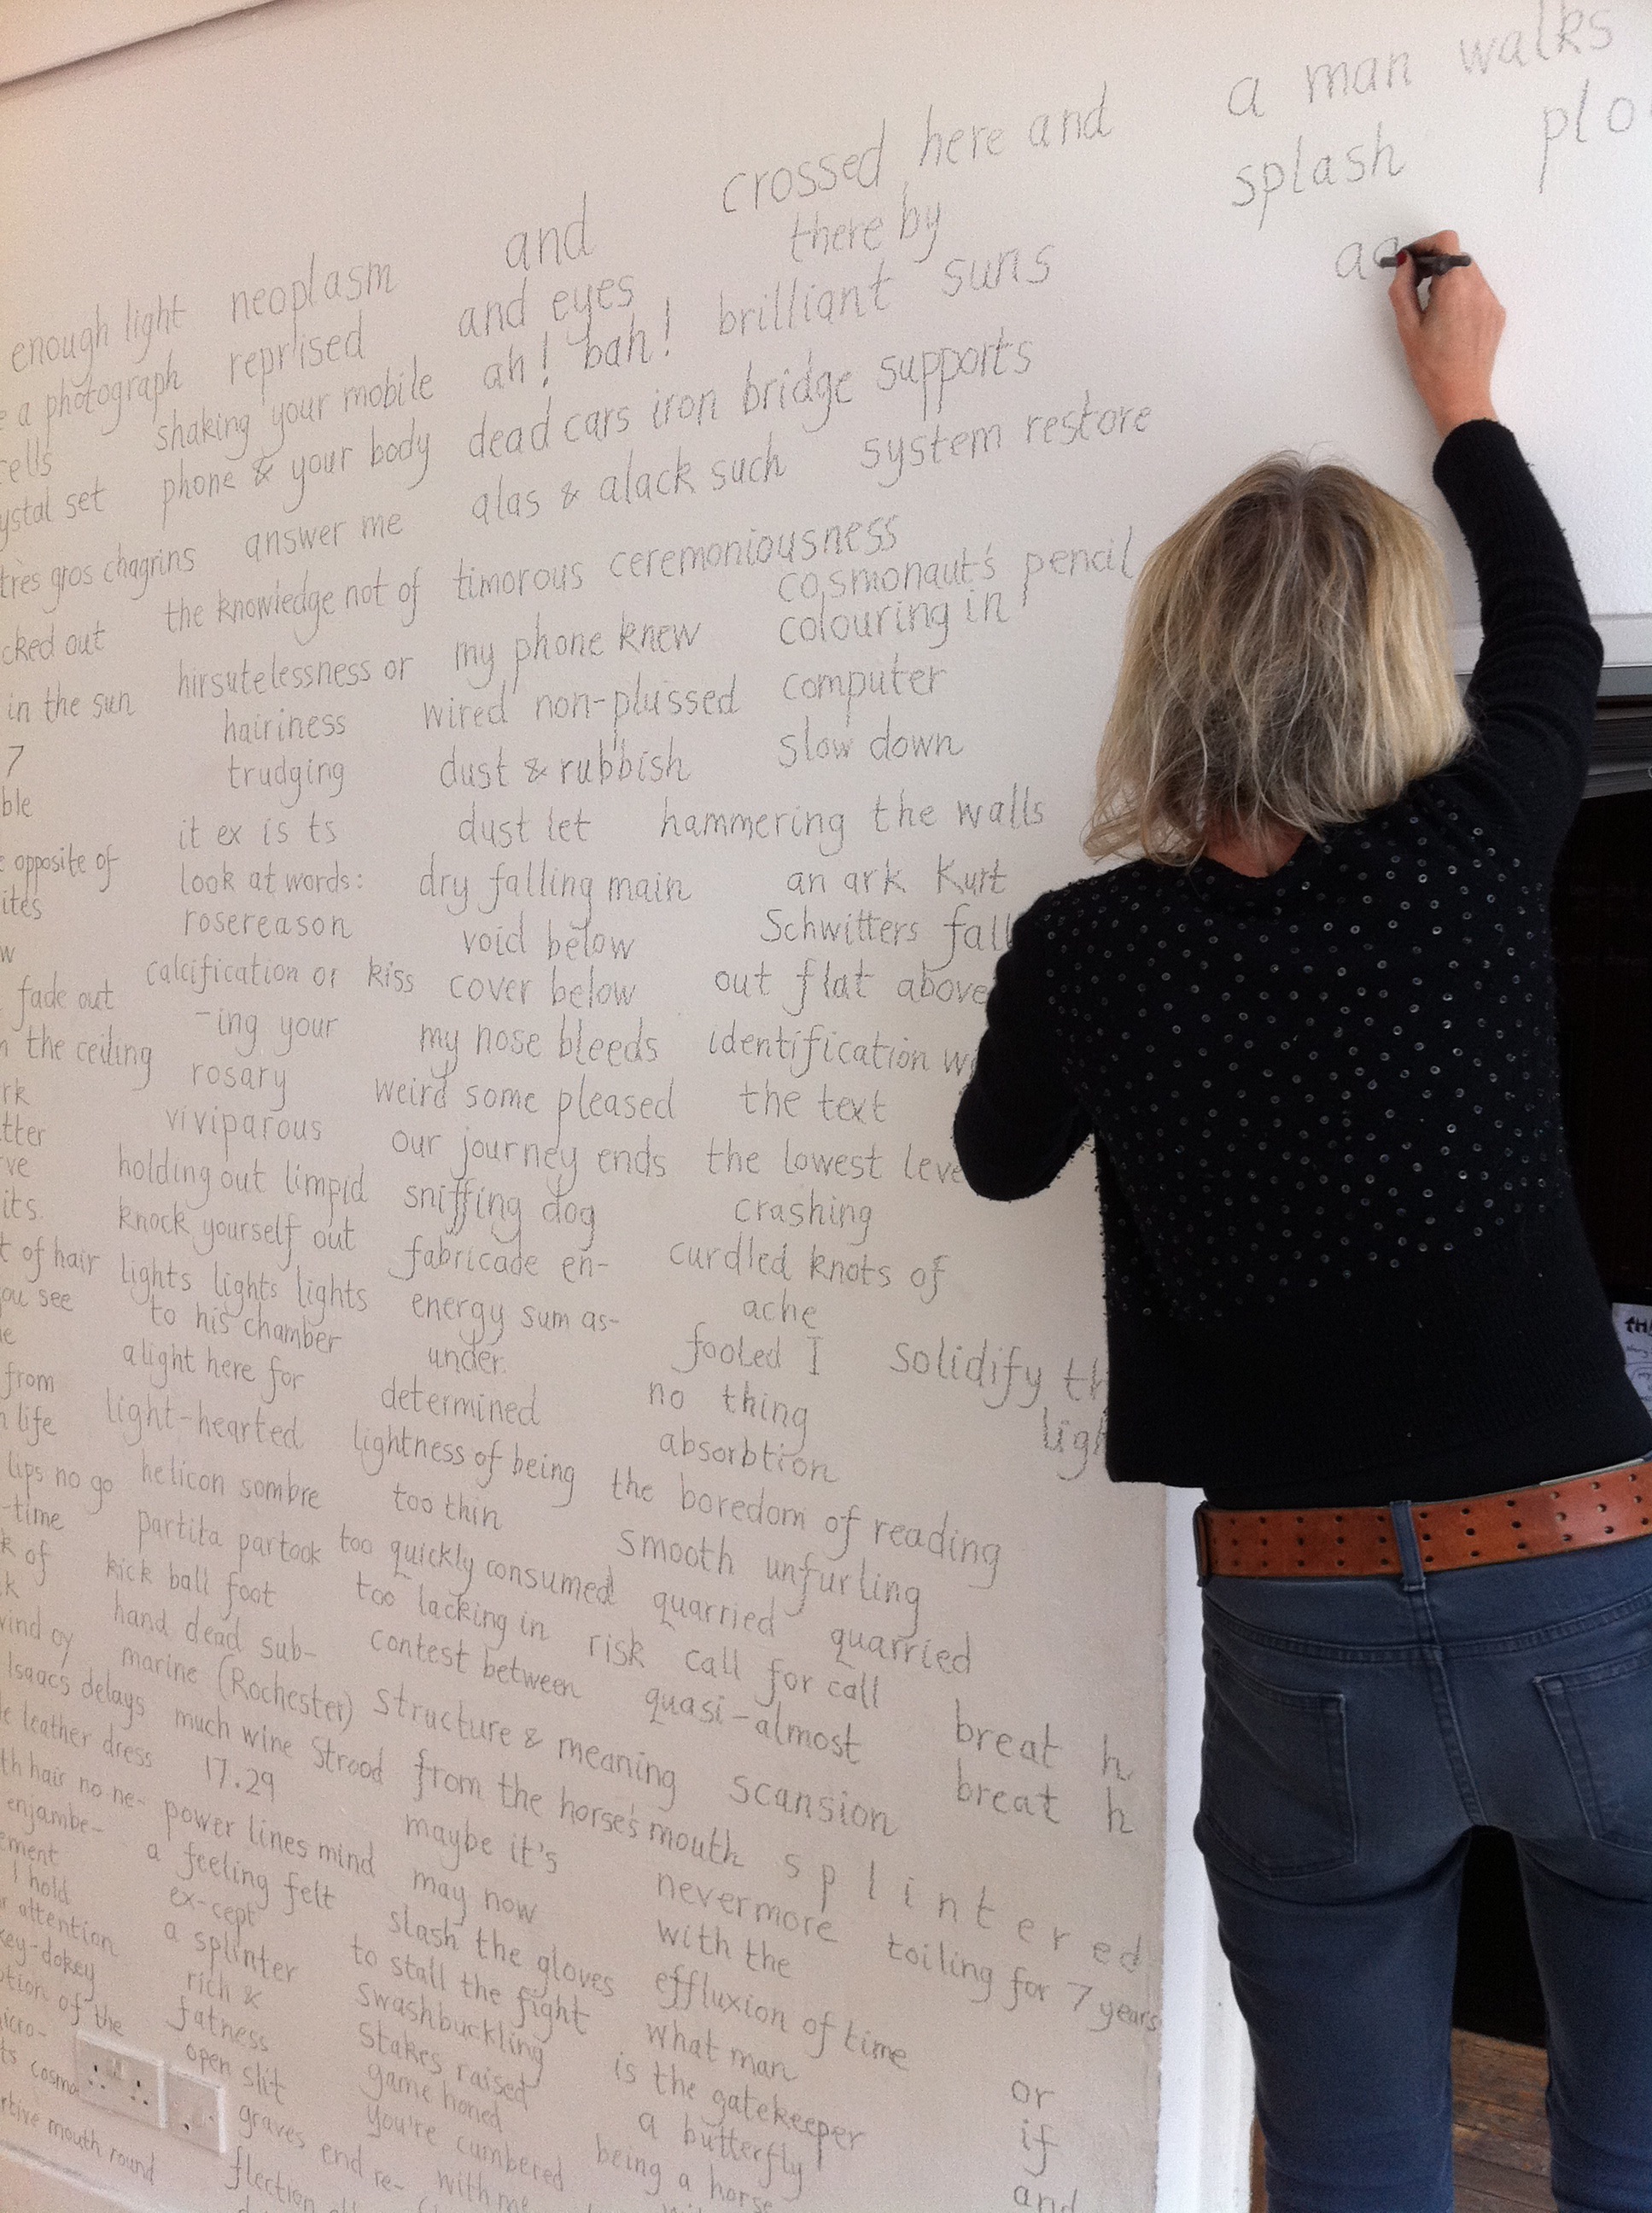 enough light
a photograph
cells
ystal set
très gros chagrins
cked out
in the sun
7
ble
opposite of
ites
w
fade out
the ceiling
rk
tter
ve
its.
t of hair
ou see
from
life
lips no go
-time
k of
k
wind oy
Isaacs delays
leather dress
th hair no ne-
enjambe-
ement
I hold
attention
key-dokey
otion of the
micro-
ts cosmo
rtive mouth round
neoplasm
reprised
shaking your mobile
phone & your body
answer me
the knowledge not of
hirsutelessness or
hairiness
trudging
it ex is ts
look at words:
rosereason
calcification or kiss
-ing your
rosary
viviparous
holding out limpid
knock yourself out
lights lights lights
to his chamber
alight here for
light-hearted
helicon sombre
partita partook
kick ball foot
hand dead sub-
marine (Rochester)
much wine Strood
17.29
power lines mind
a feeling felt
ex-cept
a splinter
rich &
fatness
open slit
graves end re-
flection
and
and eyes
ah! bah!
dead cars iron bridge supports
alas & alack such
timorous ceremoniousness
my phone knew
wired non-plussed
dust & rubbish
dust let
dry falling main
void below
cover below
my nose bleeds
weird some pleased
our journey ends
sniffing dog
fabricade en-
energy sum as-
under.
determined
lightness of being
too thin
too quickly consumed
too lacking in
contest between
structure & meaning
from the horse's mouth
maybe it's
may now
slash the gloves
to stall the fight
swashbuckling
stakes raised
game honed
you're cumbered
with me
crossed here and
there by
brilliant suns
system restore
cosmonaut's pencil
colouring in
computer
slow down
hammering the walls
an ark Kurt
Schwitters fall
out flat above
identification wi
the text
the lowest leve
crashing
curdled knots of
ache
fooled I
no thing
absorbtion
the boredom of reading
smooth unfurling
quarried quarried
risk call for call
quasi-almost
scansion
splintered
nevermore
with the
effluxion of time
what man
is the gatekeeper
a butterfly
being a horse
solidify th
ligh
breat h
breat h
toiling for 7 years
or
if
and
a man walks
splash plo